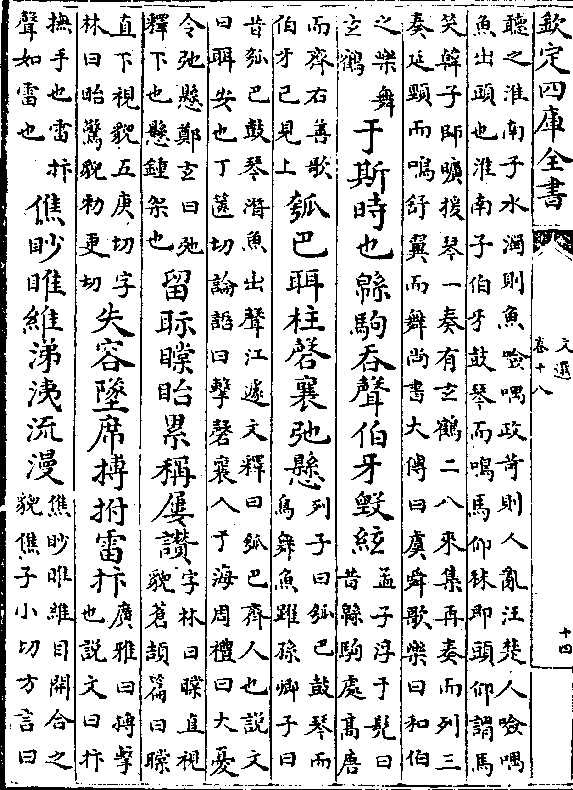 欽定四庫全書
文選
卷十八
十四
聽之淮南子水濁則魚噞喁政苛則人亂汪楚人噞喁
魚出頭也淮南子伯牙鼓琴而鳴馬仰秣即頭仰謂馬
笑韓子師曠援琴一奏有玄鶴二八來集再奏而列三
奏延頸而鳴舒翼而舞尚書大傳曰虞舜歌樂曰和伯
之樂舞
玄鶴
于斯時也緜駒吞聲伯牙毀絃
孟子淳于髡曰
昔緜駒處高唐
而齊右善歌
伯牙已見上
瓠巴聑柱磬襄弛懸
列子曰瓠巴鼓琴而
鳥舞魚躍孫卿子曰
昔瓠巴鼓琴潛魚出聲江邃文釋曰瓠巴齊人也説文
曰聑安也丁篋切論語曰擊磬襄入于海周禮曰大憂
令弛懸鄭玄曰弛
釋下也懸鍾架也
留眎瞠眙累稱屢讚
字林曰瞠直視
貌蒼頡篇曰瞠
直下視貌五庚切字
林曰眙驚貌勑更切
失容墜席搏拊雷抃
廣雅曰搏擊
也説文曰抃
撫手也雷抃
聲如雷也
僬眇睢維涕洟流漫
僬眇睢維目開合之
貌僬子小切方言曰